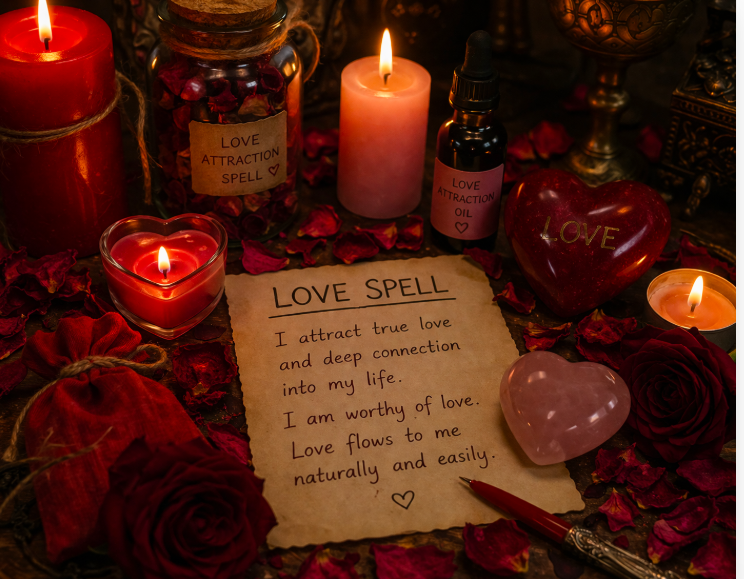 LOVE
ATTRACTION
SPELL ♡
LOVE
ATTRACTION
OIL
♡
LOVE
LOVE SPELL
I attract true love
and deep connection
into my life.
I am worthy of love.
Love flows to me
naturally and easily.
♡